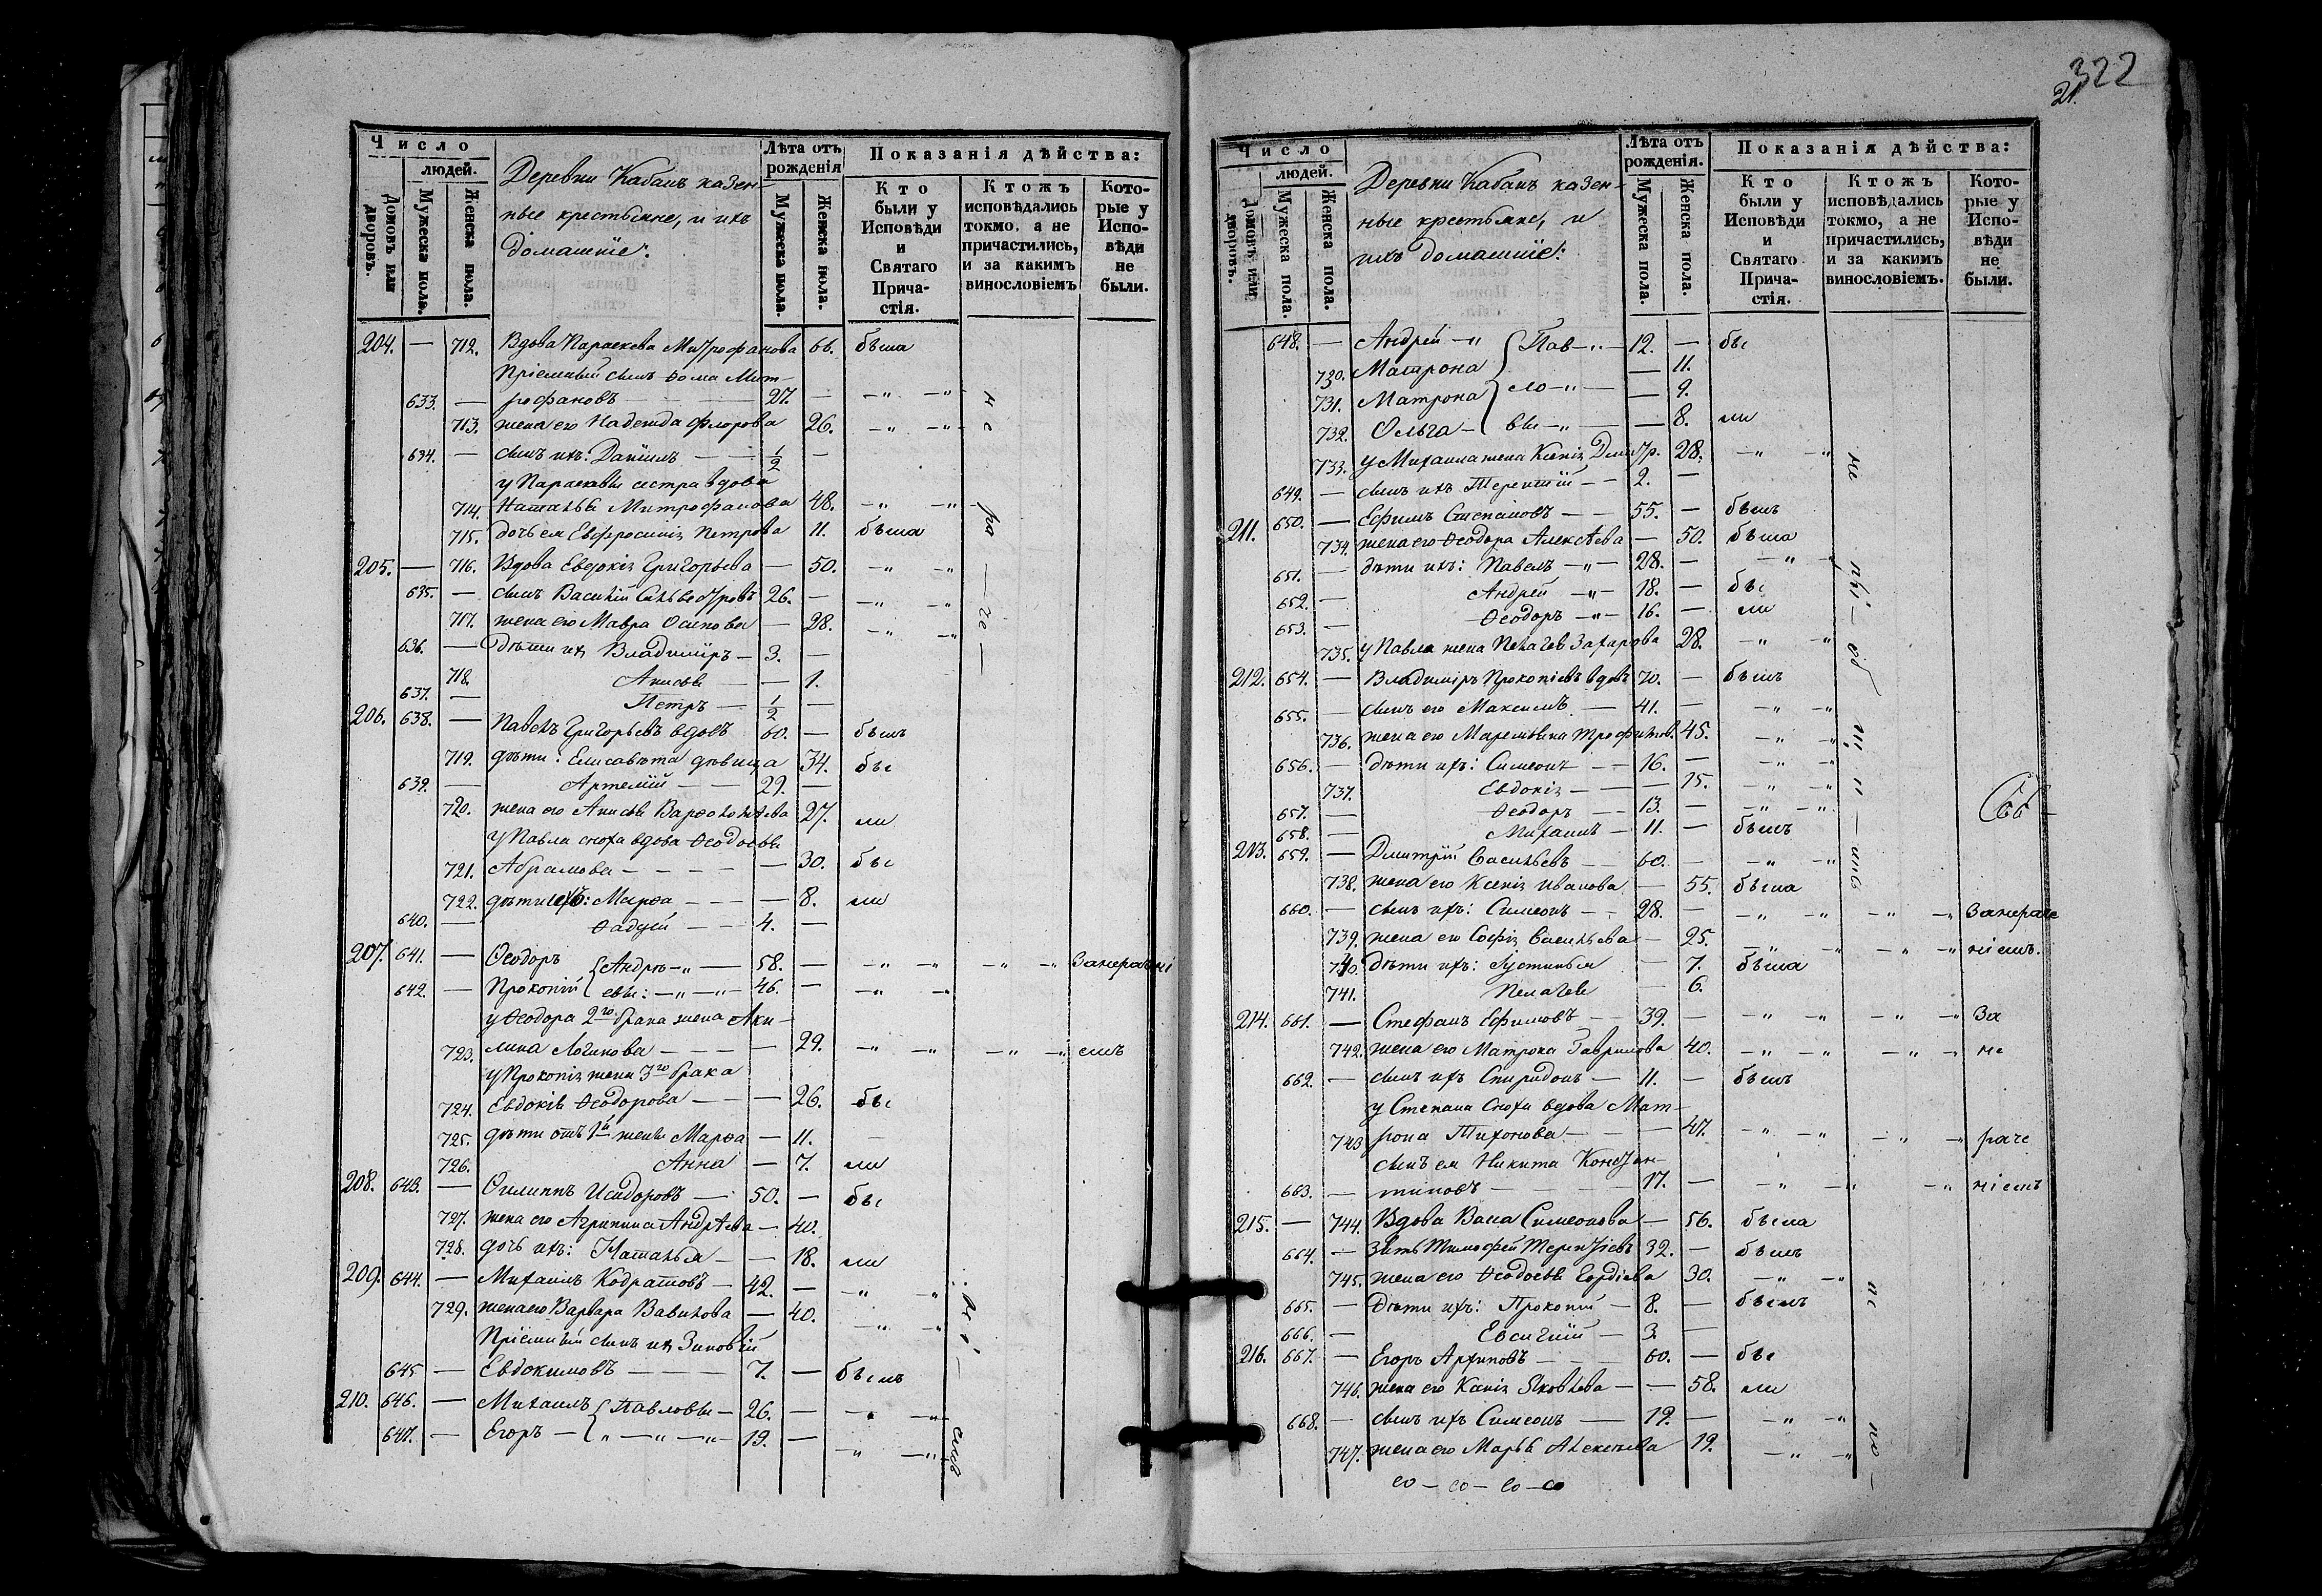 322
21.
Число
людей.
Домовъ или дворовъ.
Мужеска пола.
Женска пола.
Деревни Кабанъ казен-
ные крестьяне, и ихъ
домашніе:
Лѣта отъ рожденія
Мужеска пола.
Женска пола.
Показанія дѣйства:
Кто были у Исповѣди и Святаго Прича-стія.
Ктожъ исповѣдались токмо, а не причастились, и за какимъ винословіемъ
Кото-рые у Испо-вѣди не были.
204. — 712. Вдова Параскева Митрофанова 66. была
Пріемный сынъ Ѳома Мит-
633. — рофановъ 27. —
713. жена его Надежда Флорова 26.
634. — сынъ ихъ: Даніилъ — 1/2 —
у Параскевы сестра вдова
714. Наталья Митрофанова 48.
715. дочь ея Евфросинія Петрова 11. была
205. — 716. Вдова Евдокія Григорьева — 50.
635. — сынъ Василій Сильвестровъ 26. —
717. жена его Мавра Осипова — 28.
636. — Дѣти ихъ Владиміръ — 3. —
718. Анисья — 1.
637. — Петръ — 1/2 —
206. 638. — Павелъ Григорьевъ вдовъ 60. — былъ
719. дѣти: Елисавета дѣвица 34. бы
639. — Артемій — 29. —
720. жена его Анисья Варѳоломѣева 27. ли
у Павла сноха вдова Ѳеодосья
721. Абрамова — 30. бы
722. дѣти ихъ: Марѳа — 8. ли
640. — Ѳадей — 4. —
207. 641. — Ѳеодоръ Андре- 58. — Занераче
642. — Прокопій евы: 46. —
у Ѳеодора 2го брака жена Аку-
723. лина Логинова — 29. емъ
у Прокопія жена 3го брака
724. Евдокія Ѳеодорова — 26. бы
725. дѣти отъ 1й жены Марѳа — 11.
726. Анна — 7. ли
208. 643. — Филиппъ Исидоровъ — 50. — бы
727. жена его Агрипина Андрѣева — 40.
728. дочь ихъ: Наталья — 18. ли
209. 644. — Михаилъ Кодратовъ — 42. —
729. жена его Варвара Вавилова — 40.
Пріемный сынъ ихъ Зиновій
645 — Евдокимовъ — 7. — былъ
210. 646. — Михаилъ Павловы — 26. —
647. — Егоръ — 19. —
Число
людей.
Домовъ или дворовъ.
Мужеска пола.
Женска пола.
Деревни Кабанъ казен-
ные крестьяне, и
ихъ домашніе:
Лѣта отъ рожденія.
Мужеска пола.
Женска пола.
Показанія дѣйства:
Кто были у Исповѣди и Святаго Прича-стія.
Ктожъ исповѣдались токмо, а не причастились, и за какимъ винословіемъ.
Кото-рые у Испо-вѣди не были.
648. — Андрей Пав- 12. — бы
730. Матрона — 11.
731. Матрона ло- — 9.
732. Ольга — вы — 8. ли
733. у Михаила жена Ксенія Димитр. 28.
649. — сынъ ихъ Терентій — 2. —
211. 650. — Ефимъ Степановъ — 55. — былъ
734. жена его Ѳеодора Алексѣева — 50. была
651. — дѣти ихъ: Павелъ 28. —
652. — Андрей 18. — бы
653. — Ѳеодоръ 16. — ли
735. у Павла жена Пелагея Захарова 28.
212. 654. — Владиміръ Прокопіевъ вдовъ 70. — былъ
655. — сынъ его Максимъ — 41. —
736. жена его Маремьяна Трофимов. 45.
656. — дѣти ихъ: Симеонъ — 16. —
737. Евдокія — 15.
657. — Ѳеодоръ — 13. —
658. — Михаилъ — 11. — былъ
213. 659. — Дмитрій Васильевъ — 60. —
738. жена его Ксенія Иванова — 55. была
660. — сынъ ихъ: Симеонъ — 28. — Занераче
739. жена его Софія Васильева — 25. ніемъ.
740. дѣти ихъ: Іустинья — 7. была
741. Пелагея — 6.
214. 661. — Стефанъ Ефимовъ — 39. — За
742. жена его Матрона Гаврилова 40. не
662. — сынъ ихъ Спиридонъ — 11. — былъ
у Степана сноха вдова Мат-
743 рона Тихонова — 47. раче
сынъ ея Никита Констан-
663. — тиновъ — 17. — ніемъ
215. — 744. Вдова Васа Симеонова — 56. была
664. — Зять Тимофей Терентіевъ 32. — былъ
745. жена его Ѳеодосья Гордіева 30.
665. — Дѣти ихъ: Прокопій — 8. — былъ
666. — Евсигній — 3. —
216. 667. — Егоръ Архиповъ — 60. — бы
746. жена его Ксенія Яковлева — 58. ли
668. — сынъ ихъ Симеонъ — 19. —
747. жена его Марья Алексѣева 19.